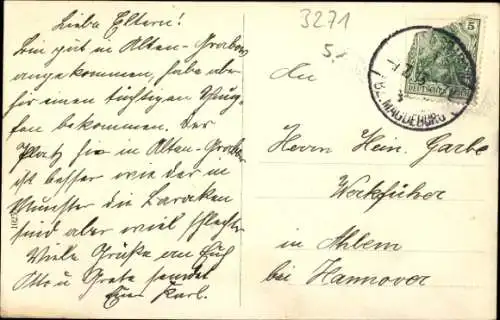 Liebe Eltern!
Bin gut in Alten-Grabow
angekommen, habe aber
hier einen tüchtigen
bekommen. Der
Platz hier in Alten-Grabow
ist besser wie der in
Munster die Baracken
sind aber viel schlechter
Viele Grüße an Euch
Otto u Grete sendet
Euer Karl.
3271
5,-
An
Herrn Hein. Garbe
Werkführer
in Ahlem
bei Hannover
5
DEUTSCHES REICH
BZ. MAGDEBURG